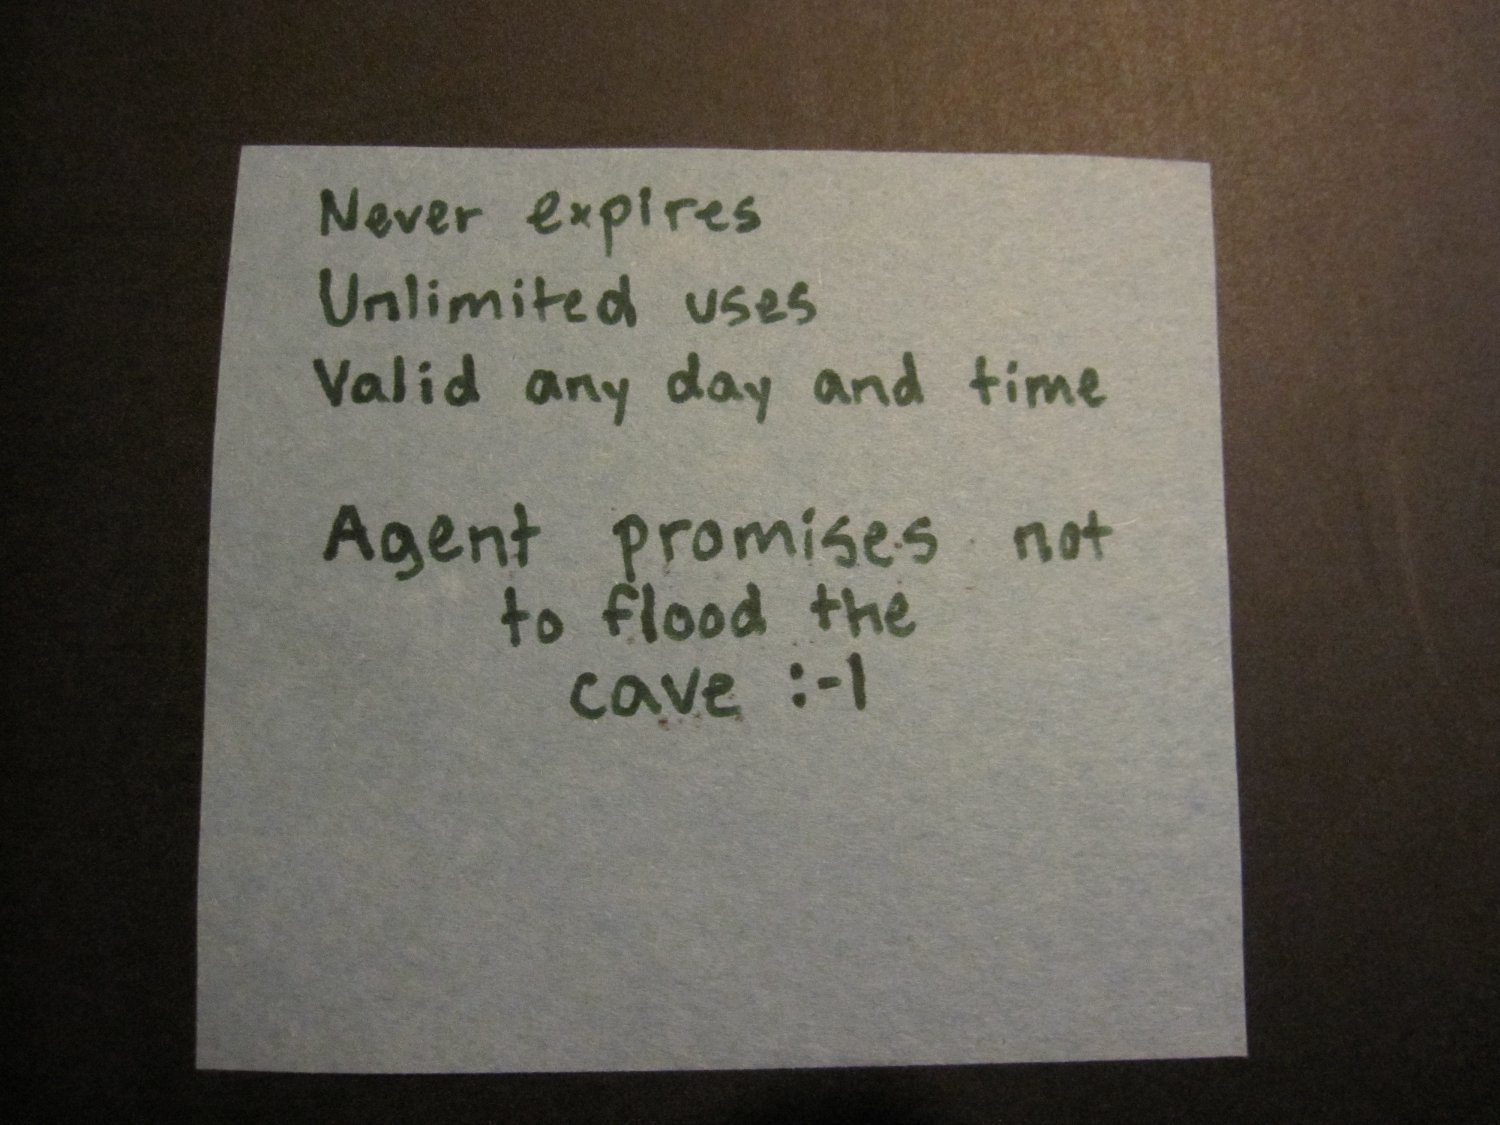 Never expires
Unlimited uses
Valid any day and time
Agent promises not
to flood the
cave :-|